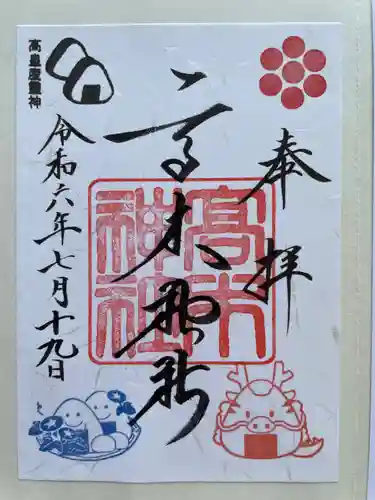 奉拝
高木神社
高木神社
高皇産靈神
令和六年七月十九日